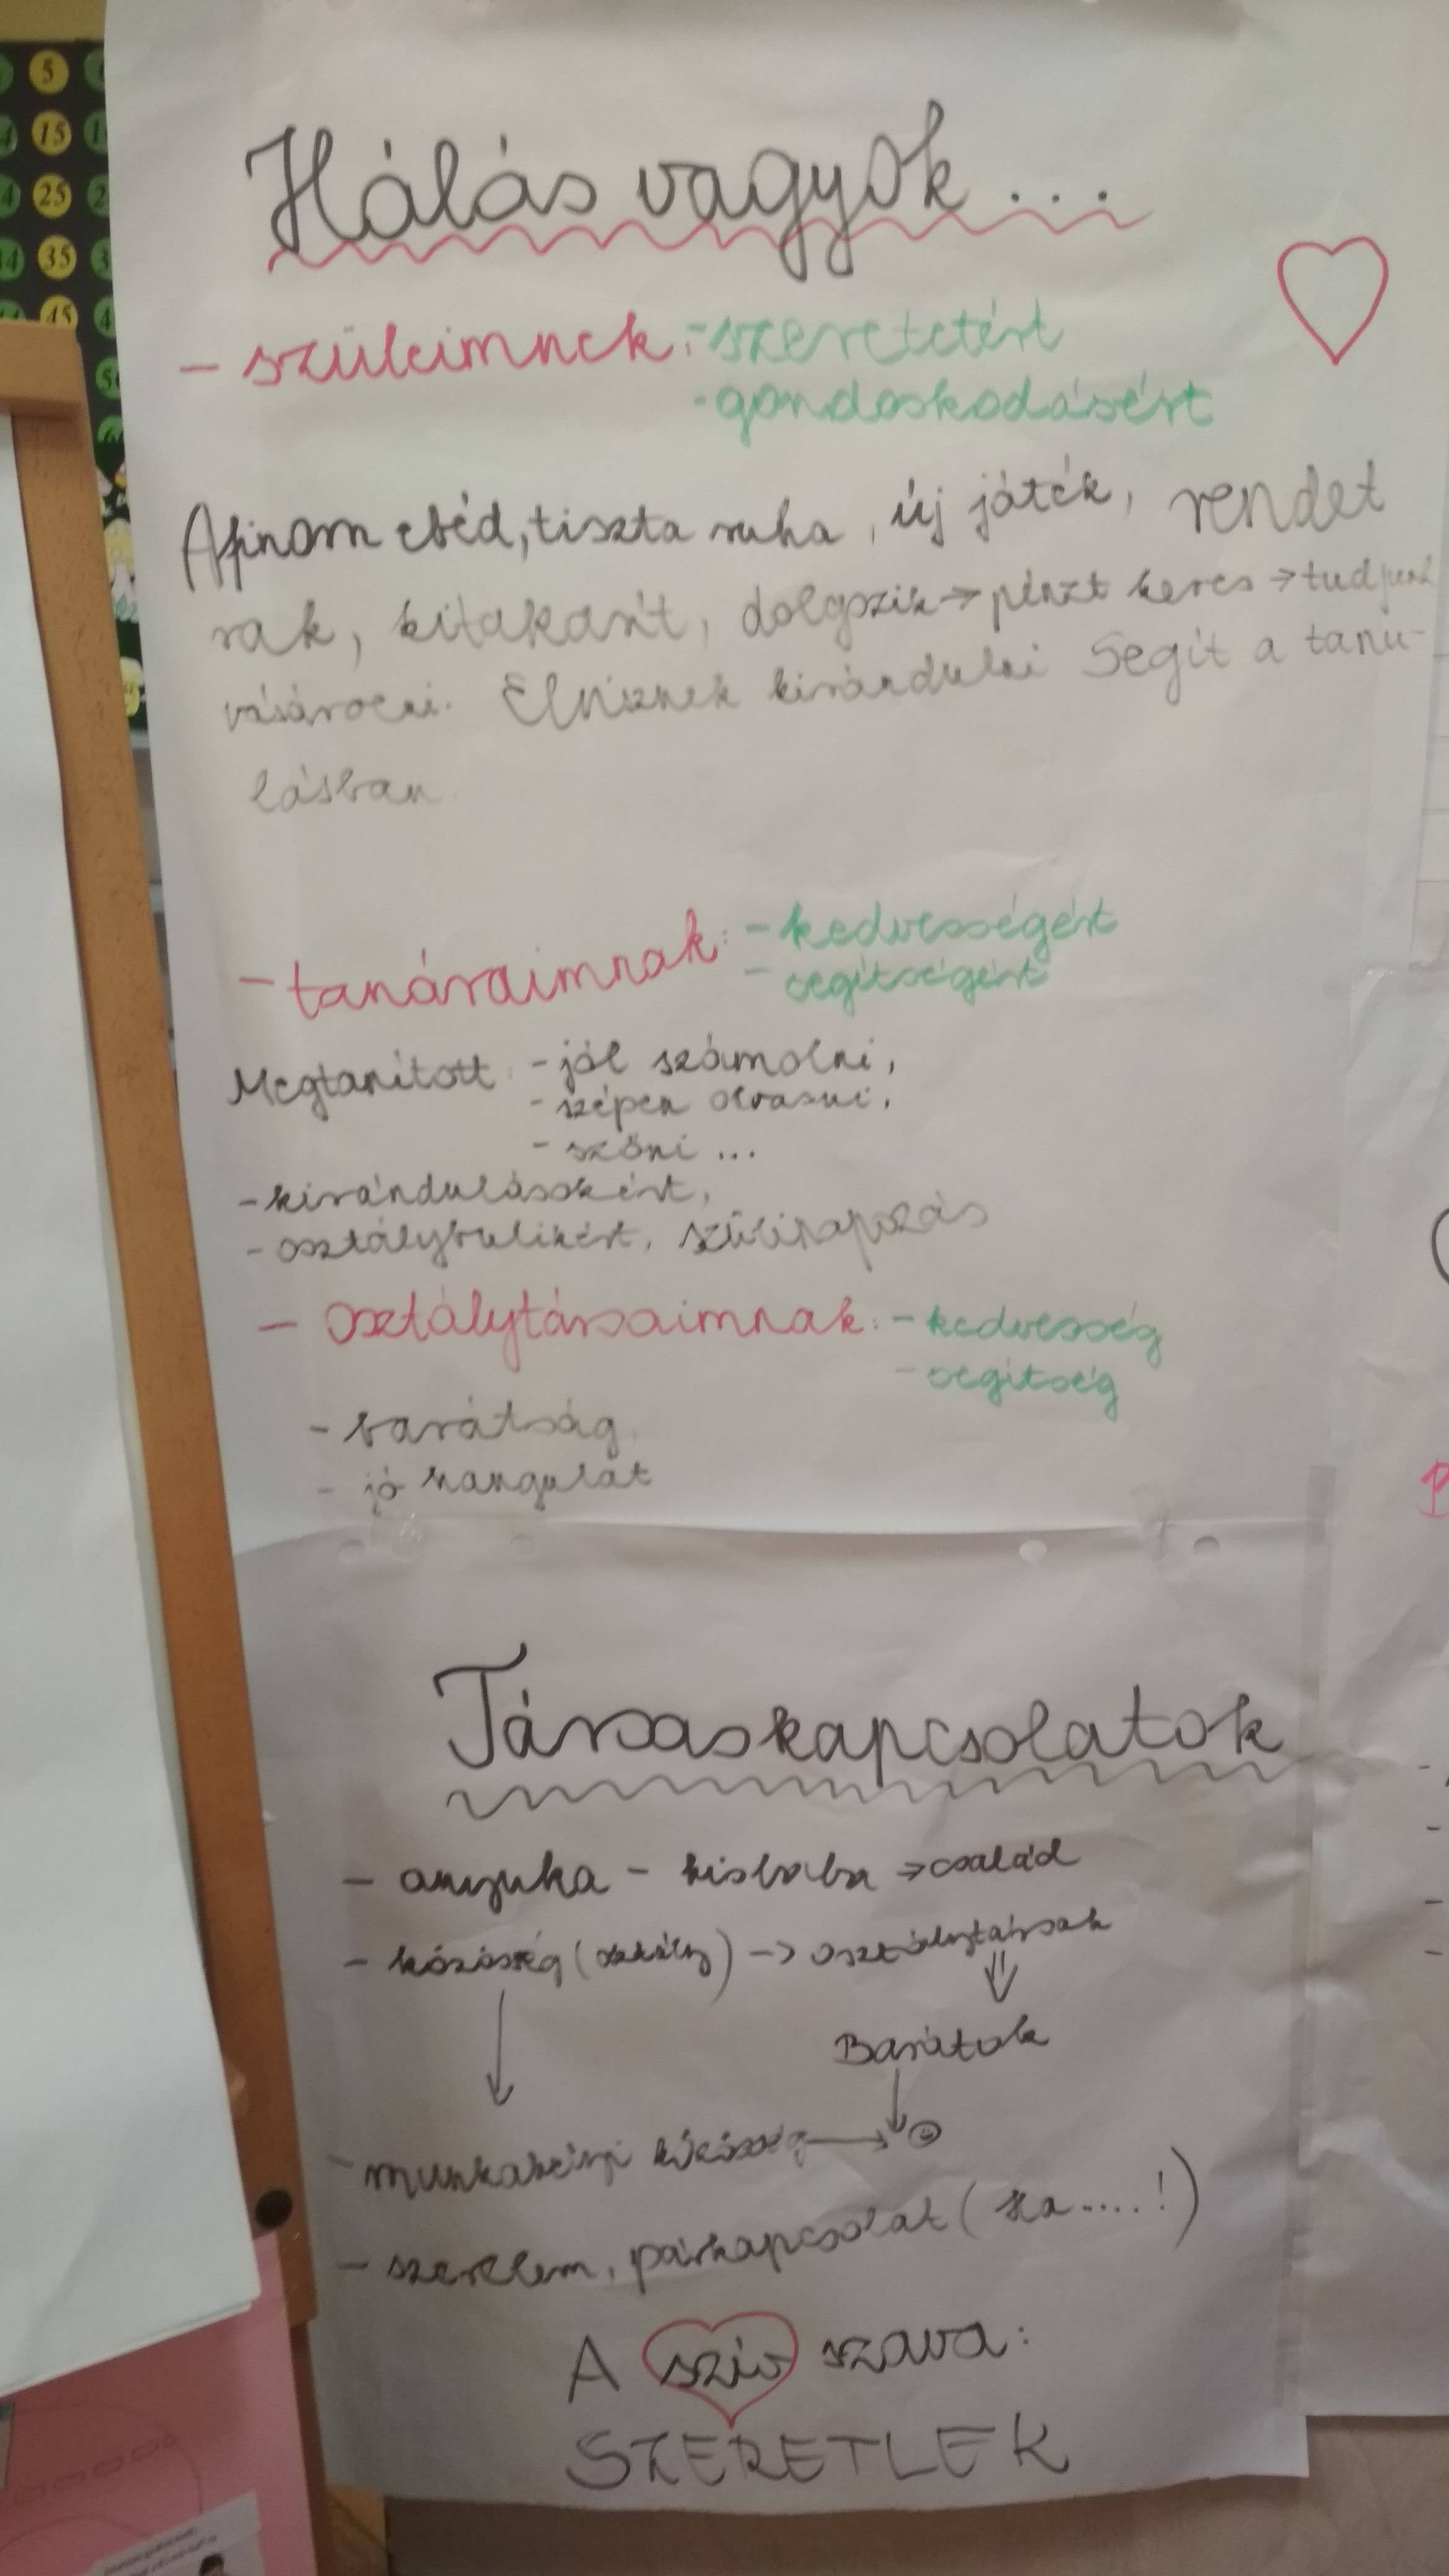 5
15
25
35
45
Hálás vagyok ...
- szüleimnek: - szeretetért
- gondoskodásért
A finom ebéd, tiszta ruha, új játék, rendet
rak, kitakarít, dolgozik → pénzt keres → tudjunk
vásárolni. Elvisznek kirándulni Segít a tanu-
lásban.
- tanáraimnak: - kedvességért
- segítségért
Megtanított: - jól számolni,
- szépen olvasni,
- szőni ...
- kirándulásokért,
- osztálybulikért, szülinapozás
- osztálytársaimnak: - kedvesség
- segítség
- barátság
- jó hangulat
Társaskapcsolatok
- anyuka - kisbaba → család
- közösség (osztály) → osztálytársak
Barátok
- munkahelyi közösség →
- szerelem, párkapcsolat ( Ha ....! )
A szív szava:
SZERETLEK